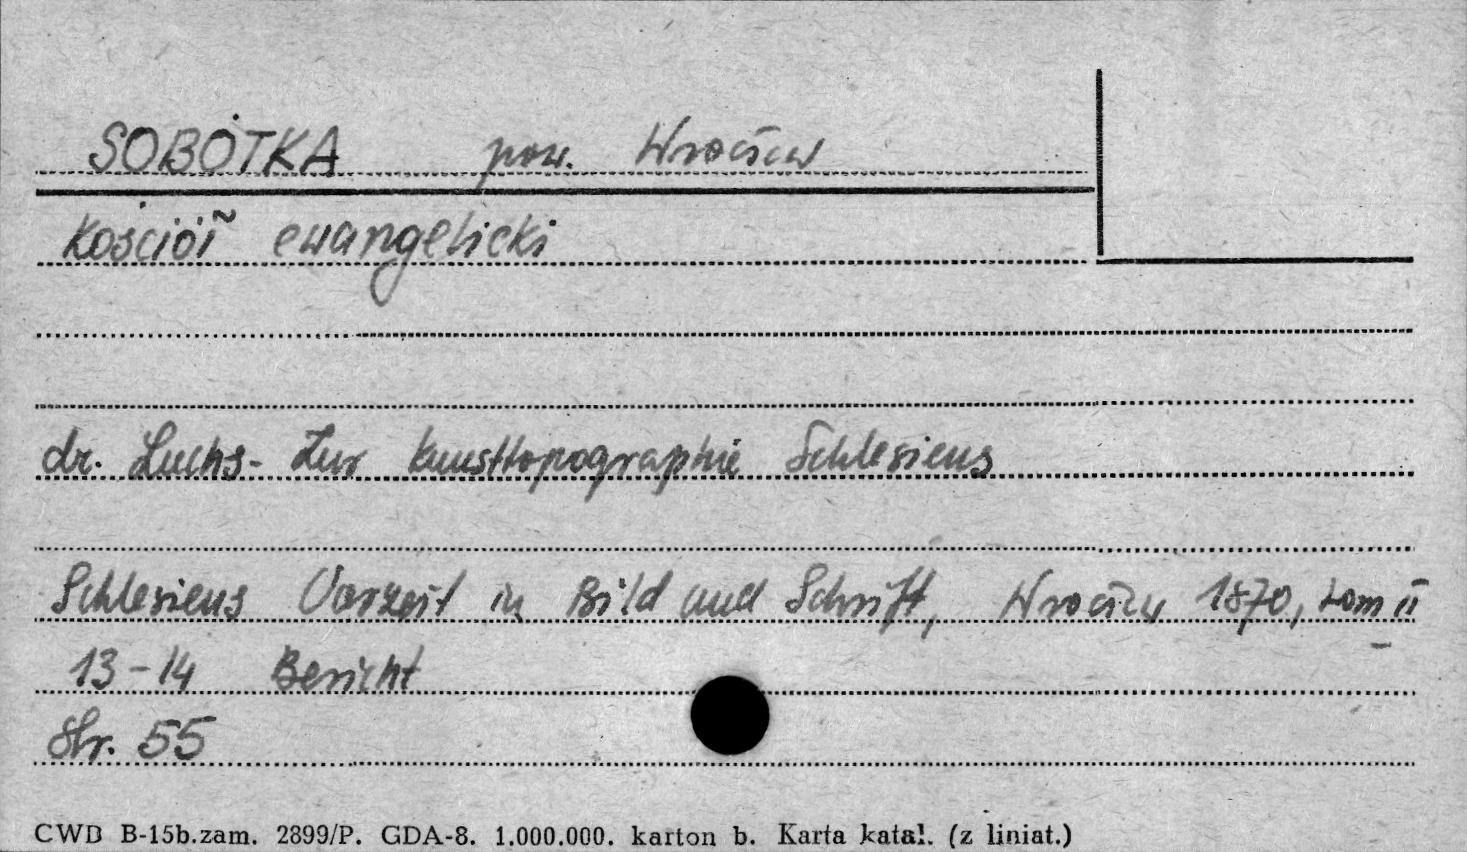 SOBÓTKA pow. Wrocław
Kościół ewangelicki
dr. Luchs - Zur Kunsttopographie Schlesiens
Schlesiens Vorzeit in Bild und Schrift, Wrocław 1870, tom II
13-14 Bericht
Str. 55
CWD B-15b.zam. 2899/P. GDA-8. 1.000.000. karton b. Karta katal. (z liniat.)